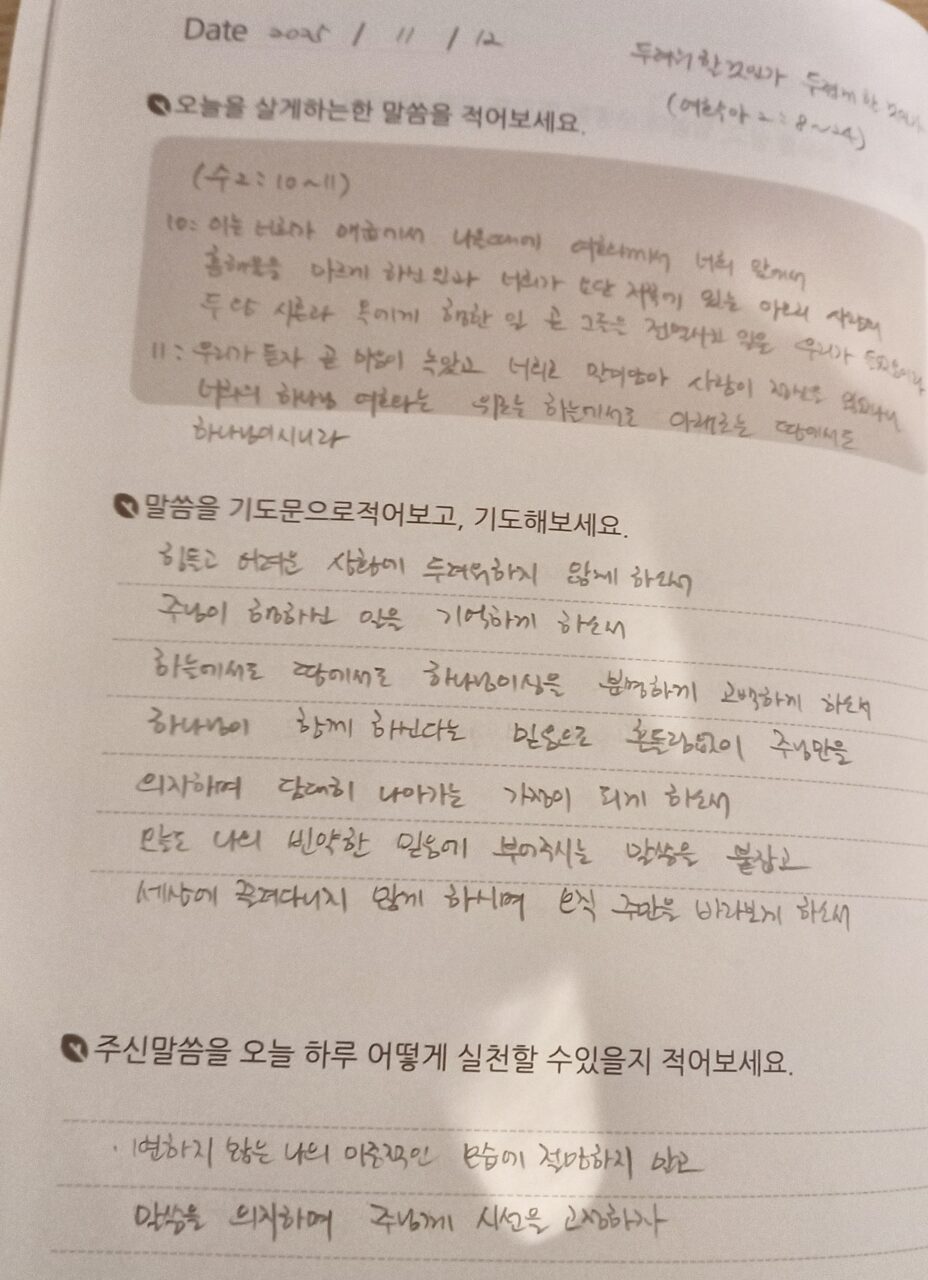 Date 2025 / 11 / 12
두려워 할 것인가 두렵게 할 것인가
(여호수아 2 : 8~24)
오늘을 살게하는한 말씀을 적어보세요.
(수2 : 10~11)
10: 이는 너희가 애굽에서 나올때에 여호와께서 너희 앞에서
홍해물을 마르게 하신 일과 너희가 요단 저쪽에 있는 아모리 사람의
두 왕 시혼과 옥에게 행한 일 곧 그들을 전멸시킨 일을 우리가 들었음이라
11: 우리가 듣자 곧 마음이 녹았고 너희로 말미암아 사람이 정신을 잃었나니
너희의 하나님 여호와는 위로는 하늘에서도 아래로는 땅에서도
하나님이시니라
말씀을 기도문으로적어보고, 기도해보세요.
힘들고 어려운 상황에 두려워하지 않게 하소서
주님이 행하신 일을 기억하게 하소서
하늘에서도 땅에서도 하나님이심을 분명하게 고백하게 하소서
하나님이 함께 하신다는 믿음으로 흔들림없이 주님만을
의지하며 담대히 나아가는 가정이 되게 하소서
오늘도 나의 빈약한 믿음에 부어주시는 말씀을 붙잡고
세상에 끌려다니지 않게 하시며 오직 주만을 바라보게 하소서
주신말씀을 오늘 하루 어떻게 실천할 수있을지 적어보세요.
· 변하지 않은 나의 이중적인 모습에 절망하지 않고
말씀을 의지하며 주님께 시선을 고정하자